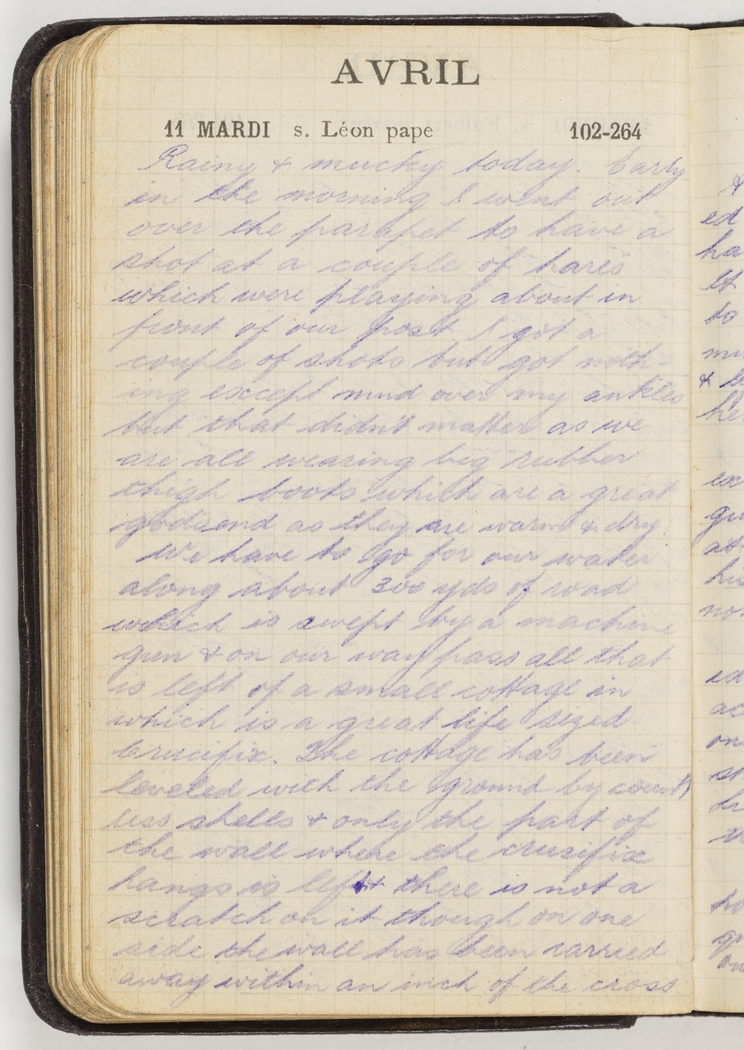 AVRIL
11 MARDI s. Léon pape 102-264
Rainy & mucky today. Early
in the morning I went out
over the parapet to have a
shot at a couple of hares
which were playing about in
front of our post I got a
couple of shots but got noth-
ing except mud over my ankles
but that didn't matter as we
are all wearing big rubber
thigh boots which are a great
godsend as they are warm & dry.
We have to go for our water
along about 300 yds of road
which is swept by a machine
gun & on our way pass all that
is left of a small cottage in
which is a great life sized
Crucifix. The cottage has been
leveled with the ground by count
less shells & only the part of
the wall where the crucifix
hangs is left & there is not a
scratch on it though on one
side the wall has been carried
away within an inch of the cross
ed
ha
It
to
mu
& b
he
ex
gu
att
hi
no
ed
ac
on
st